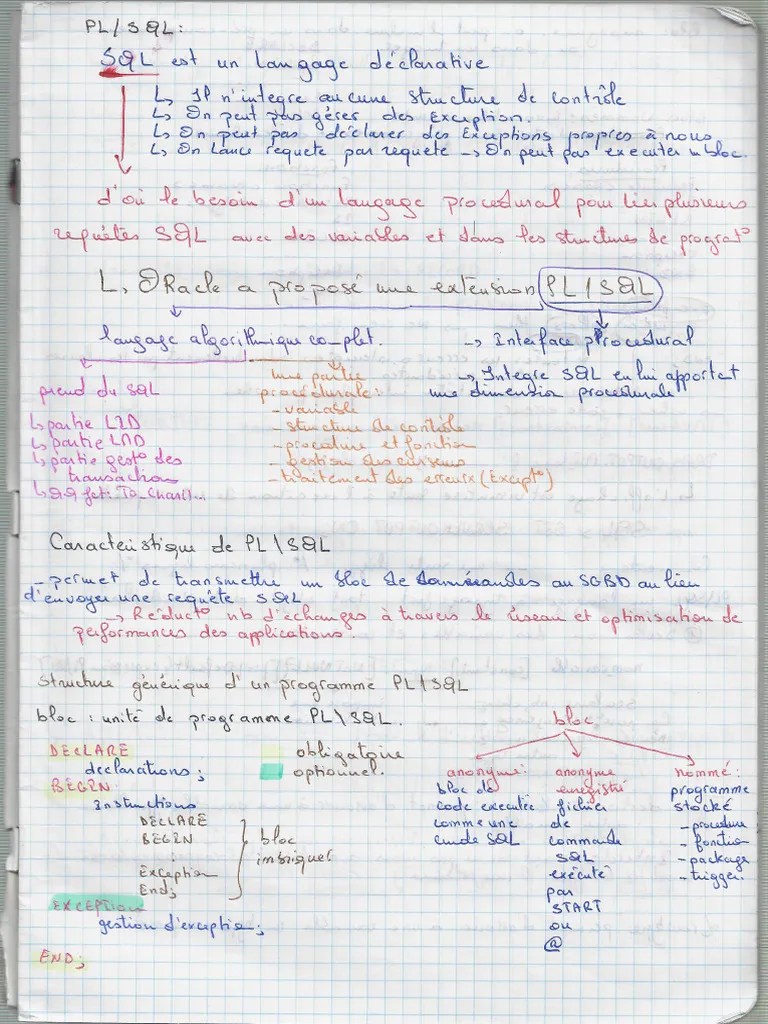 PL/SQL:
SQL est un langage déclarative
↳ Il n'integre aucune structure de contrôle
↳ On peut pas gérer des Exception.
↳ On peut pas déclarer des Exceptions propres à nous
↳ On lance requete par requete → On peut pas executer un bloc.
d'où le besoin d'un langage procedural pour lier plusieurs
requêtes SQL avec des variables et dans les structures de prograt°
↳ ORacle a proposé une extension PL/SQL
langage algorithmique complet.
→ Interface procedural
→ Integre SQL en lui apportat
une dimension procedurale
prend du SQL
↳ partie LID
↳ partie LMD
↳ partie gest° des
transaction
↳ fct: To_Char()...
une partie
procédurale:
- variable
- structure de contrôle
- procedure et fonction
- gestion des curseurs
- traitement des erreurx (Except°)
Caracteristique de PL\SQL
- permet de transmettre un bloc de commandes au SGBD au lieu
d'envoyer une requête SQL
→ Réduct° nb d'echanges à travers le réseau et optimisation de
performances des applications.
Structure générique d'un programme PL\SQL
bloc : unité de programme PL\SQL.
DECLARE
declarations;
BEGIN
Instructions
DECLARE
BEGIN
:
Exception
End;
bloc
imbriquer
EXCEPTION
gestion d'exception;
END;
obligatoire
optionnel.
bloc
anonyme:
bloc de
code executée
comme une
cmde SQL
anonyme
enregistré
fichier
de
commande
SQL
exécuté
par
START
ou
@
nommé:
programme
stocké
- procedure
- fonction
- package
- trigger.